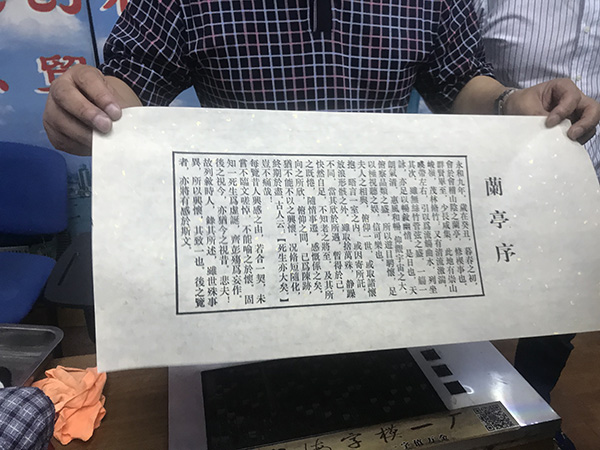 蘭亭序
永和九年，歲在癸丑，暮春之初，
會於會稽山陰之蘭亭，修禊事也。
群賢畢至，少長咸集。此地有崇山
峻嶺，茂林修竹；又有清流激湍，
暎帶左右，引以爲流觴曲水，列坐
其次。雖無絲竹管弦之盛，一觴一
詠，亦足以暢敘幽情。是日也，天
朗氣清，惠風和暢。仰觀宇宙之大，
俯察品類之盛，所以遊目騁懷，足
以極視聽之娛，信可樂也。
夫人之相與，俯仰一世，或取諸懷
抱，晤言一室之內；或因寄所託，
放浪形骸之外。雖取捨萬殊，靜躁
不同，當其欣於所遇，暫得於己，
快然自足，不知老之將至。及其所
之既倦，情隨事遷，感慨係之矣。
向之所欣，俯仰之間，已爲陳跡，
猶不能不以之興懷；況修短隨化，
終期於盡。古人云：【死生亦大矣。】
豈不痛哉！
每覽昔人興感之由，若合一契，未
嘗不臨文嗟悼，不能喻之於懷。固
知一死生爲虛誕，齊彭殤爲妄作。
後之視今，亦猶今之視昔。悲夫！
故列敘時人，錄其所述，雖世殊事
異，所以興懷，其致一也。後之覽
者，亦將有感於斯文。
貿
字模一厂